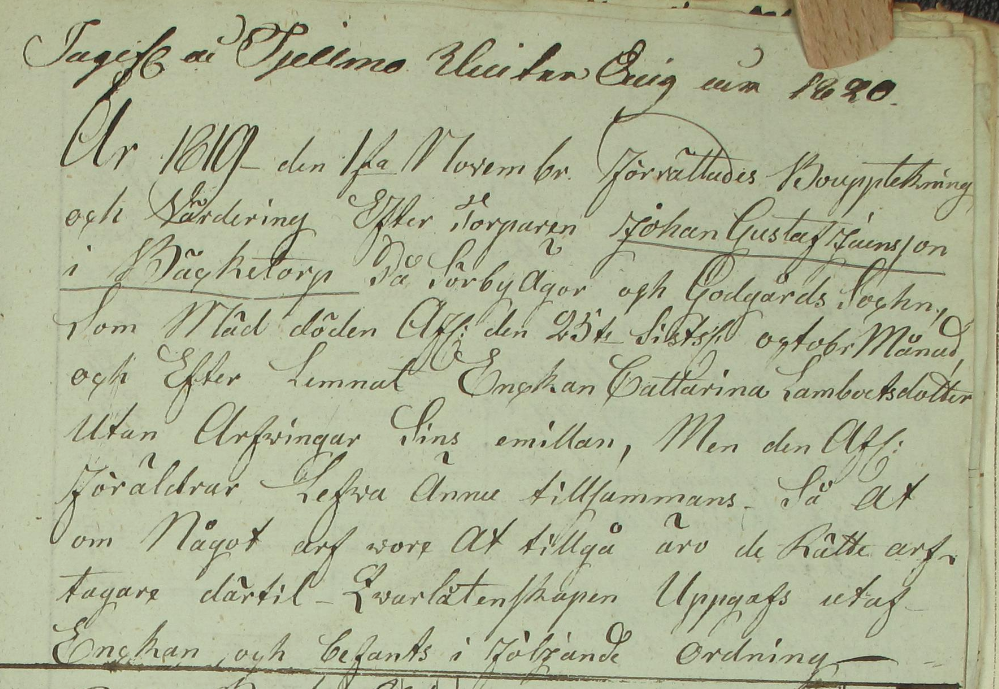 Ingifs å Tjellmo Winter Ting den 1820.
År 1819 den 1sta Novembr. förrättades Bouppteckning
och Värdering Efter Torparen Johan Gustaf Jaensson
i Bäcketorp På Sörby Ägor och Godgårds Sochn,
Som Mäd döden Afl: den 25te Sistl. octobr Månad,
och Efter Lemnat Enckan Cattarina Lambertsdotter
Utan Arfwingar Sins emillan, Men den Afl:
föräldrar Lefwa Ännu tillsammans Så At
om Något arf wore At tillgå äro de Rätte arf-
tagare därtil - Qwarlåtenskapen Uppgafs utaf
Enckan och befants i följande Ordning